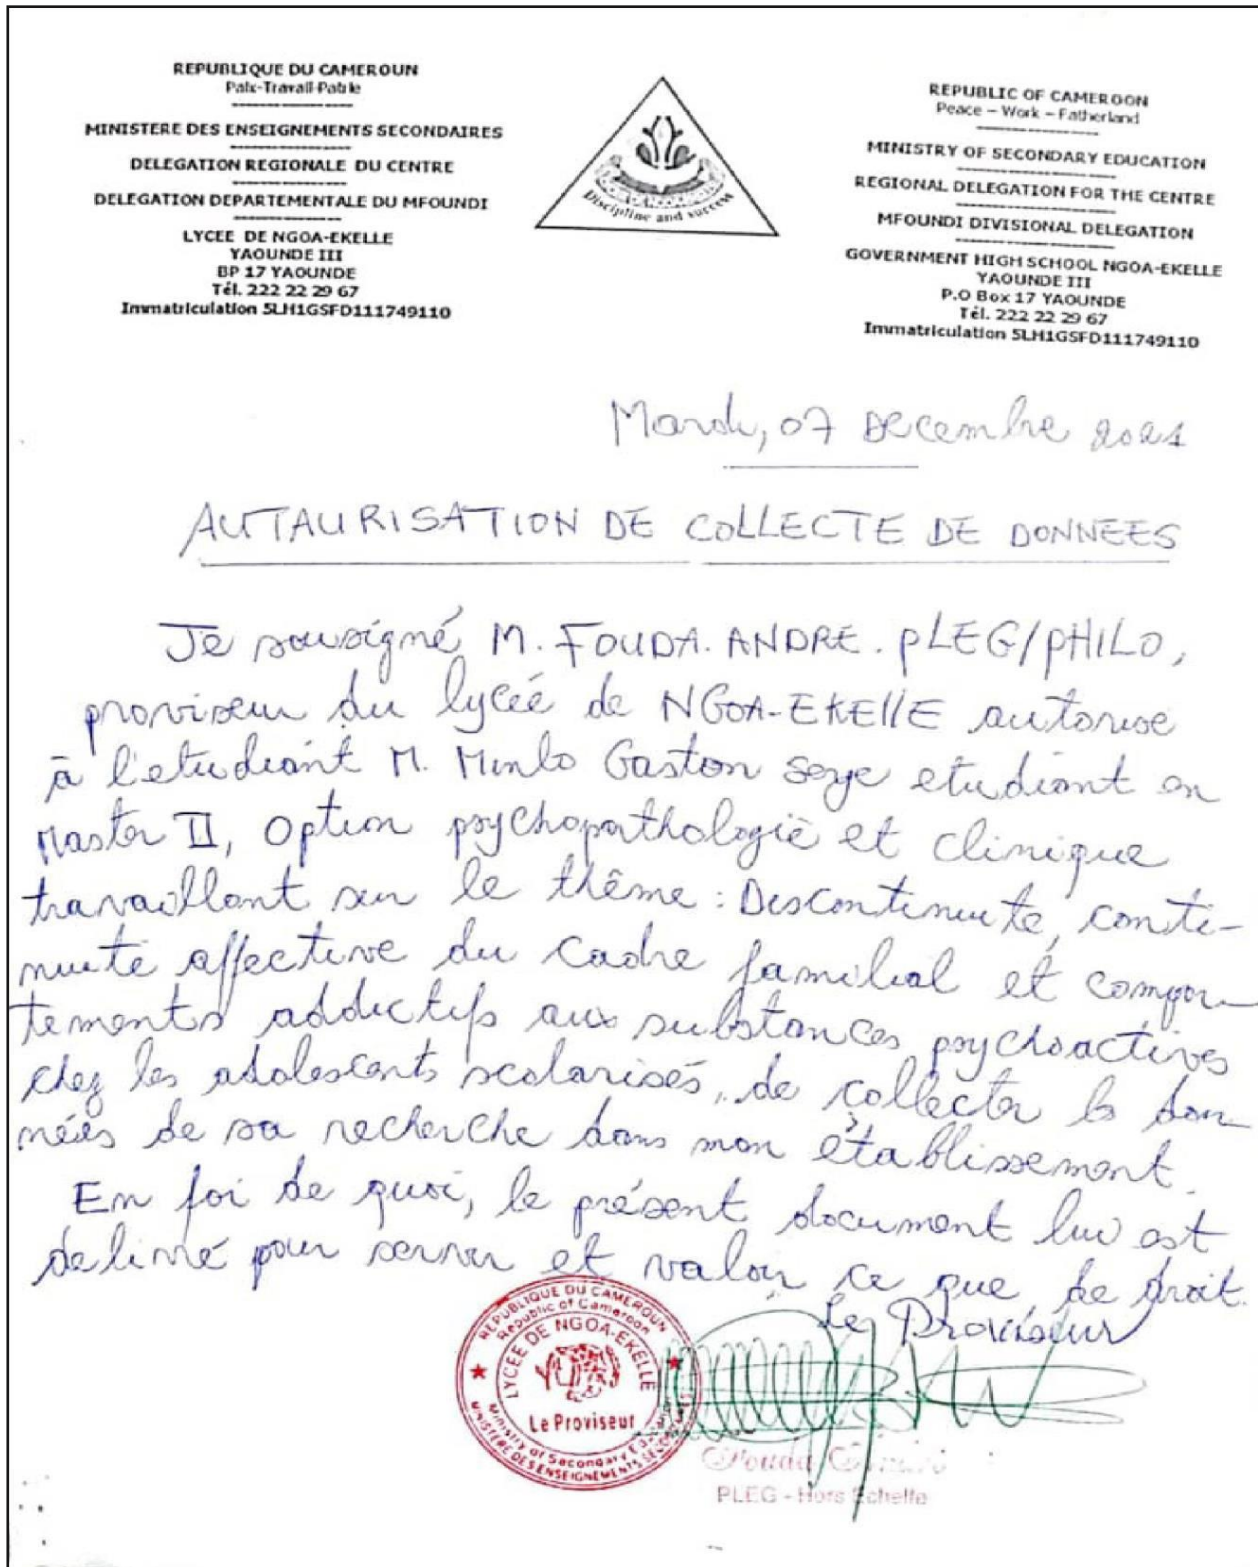 REPUBLIQUE DU CAMEROUN
Paix-Travail-Patrie
MINISTERE DES ENSEIGNEMENTS SECONDAIRES
DELEGATION REGIONALE DU CENTRE
DELEGATION DEPARTEMENTALE DU MFOUNDI
LYCEE DE NGOA-EKELLE
YAOUNDE III
BP 17 YAOUNDE
Tél. 222 22 29 67
Immatriculation 5LH1GSFD111749110
Discipline and success
REPUBLIC OF CAMEROON
Peace – Work – Fatherland
MINISTRY OF SECONDARY EDUCATION
REGIONAL DELEGATION FOR THE CENTRE
MFOUNDI DIVISIONAL DELEGATION
GOVERNMENT HIGH SCHOOL NGOA-EKELLE
YAOUNDE III
P.O Box 17 YAOUNDE
Tél. 222 22 29 67
Immatriculation 5LH1GSFD111749110
Mardi, 07 Decembre 2021
AUTAURISATION DE COLLECTE DE DONNEES
Je sousigné M. FOUDA. ANDRE. PLEG/PHILO,
proviseur du lycée de NGOA-EKEllE autorise
à l'etudiant M. Minlo Gaston Serge etudiant en
Master II, Option psychopathologie et clinique
travaillant sur le thême : Discontinuité, conti-
nuité affective du cadre familial et compor-
tements addictifs aux substances psychoactives
chez les adolescents scolarisés, de collecter les don-
nées de sa recherche dans mon établissement.
En foi de quoi, le présent document lui est
delivré pour servir et valoir ce que de droit.
Le Proviseur
REPUBLIQUE DU CAMEROUN
Republic of Cameroon
LYCEE DE NGOA-EKELLE
Le Proviseur
Ministry of Secondary
MINISTERE DES ENSEIGNEMENTS SECONDAIRES
Fouda
PLEG - Hors Echelle